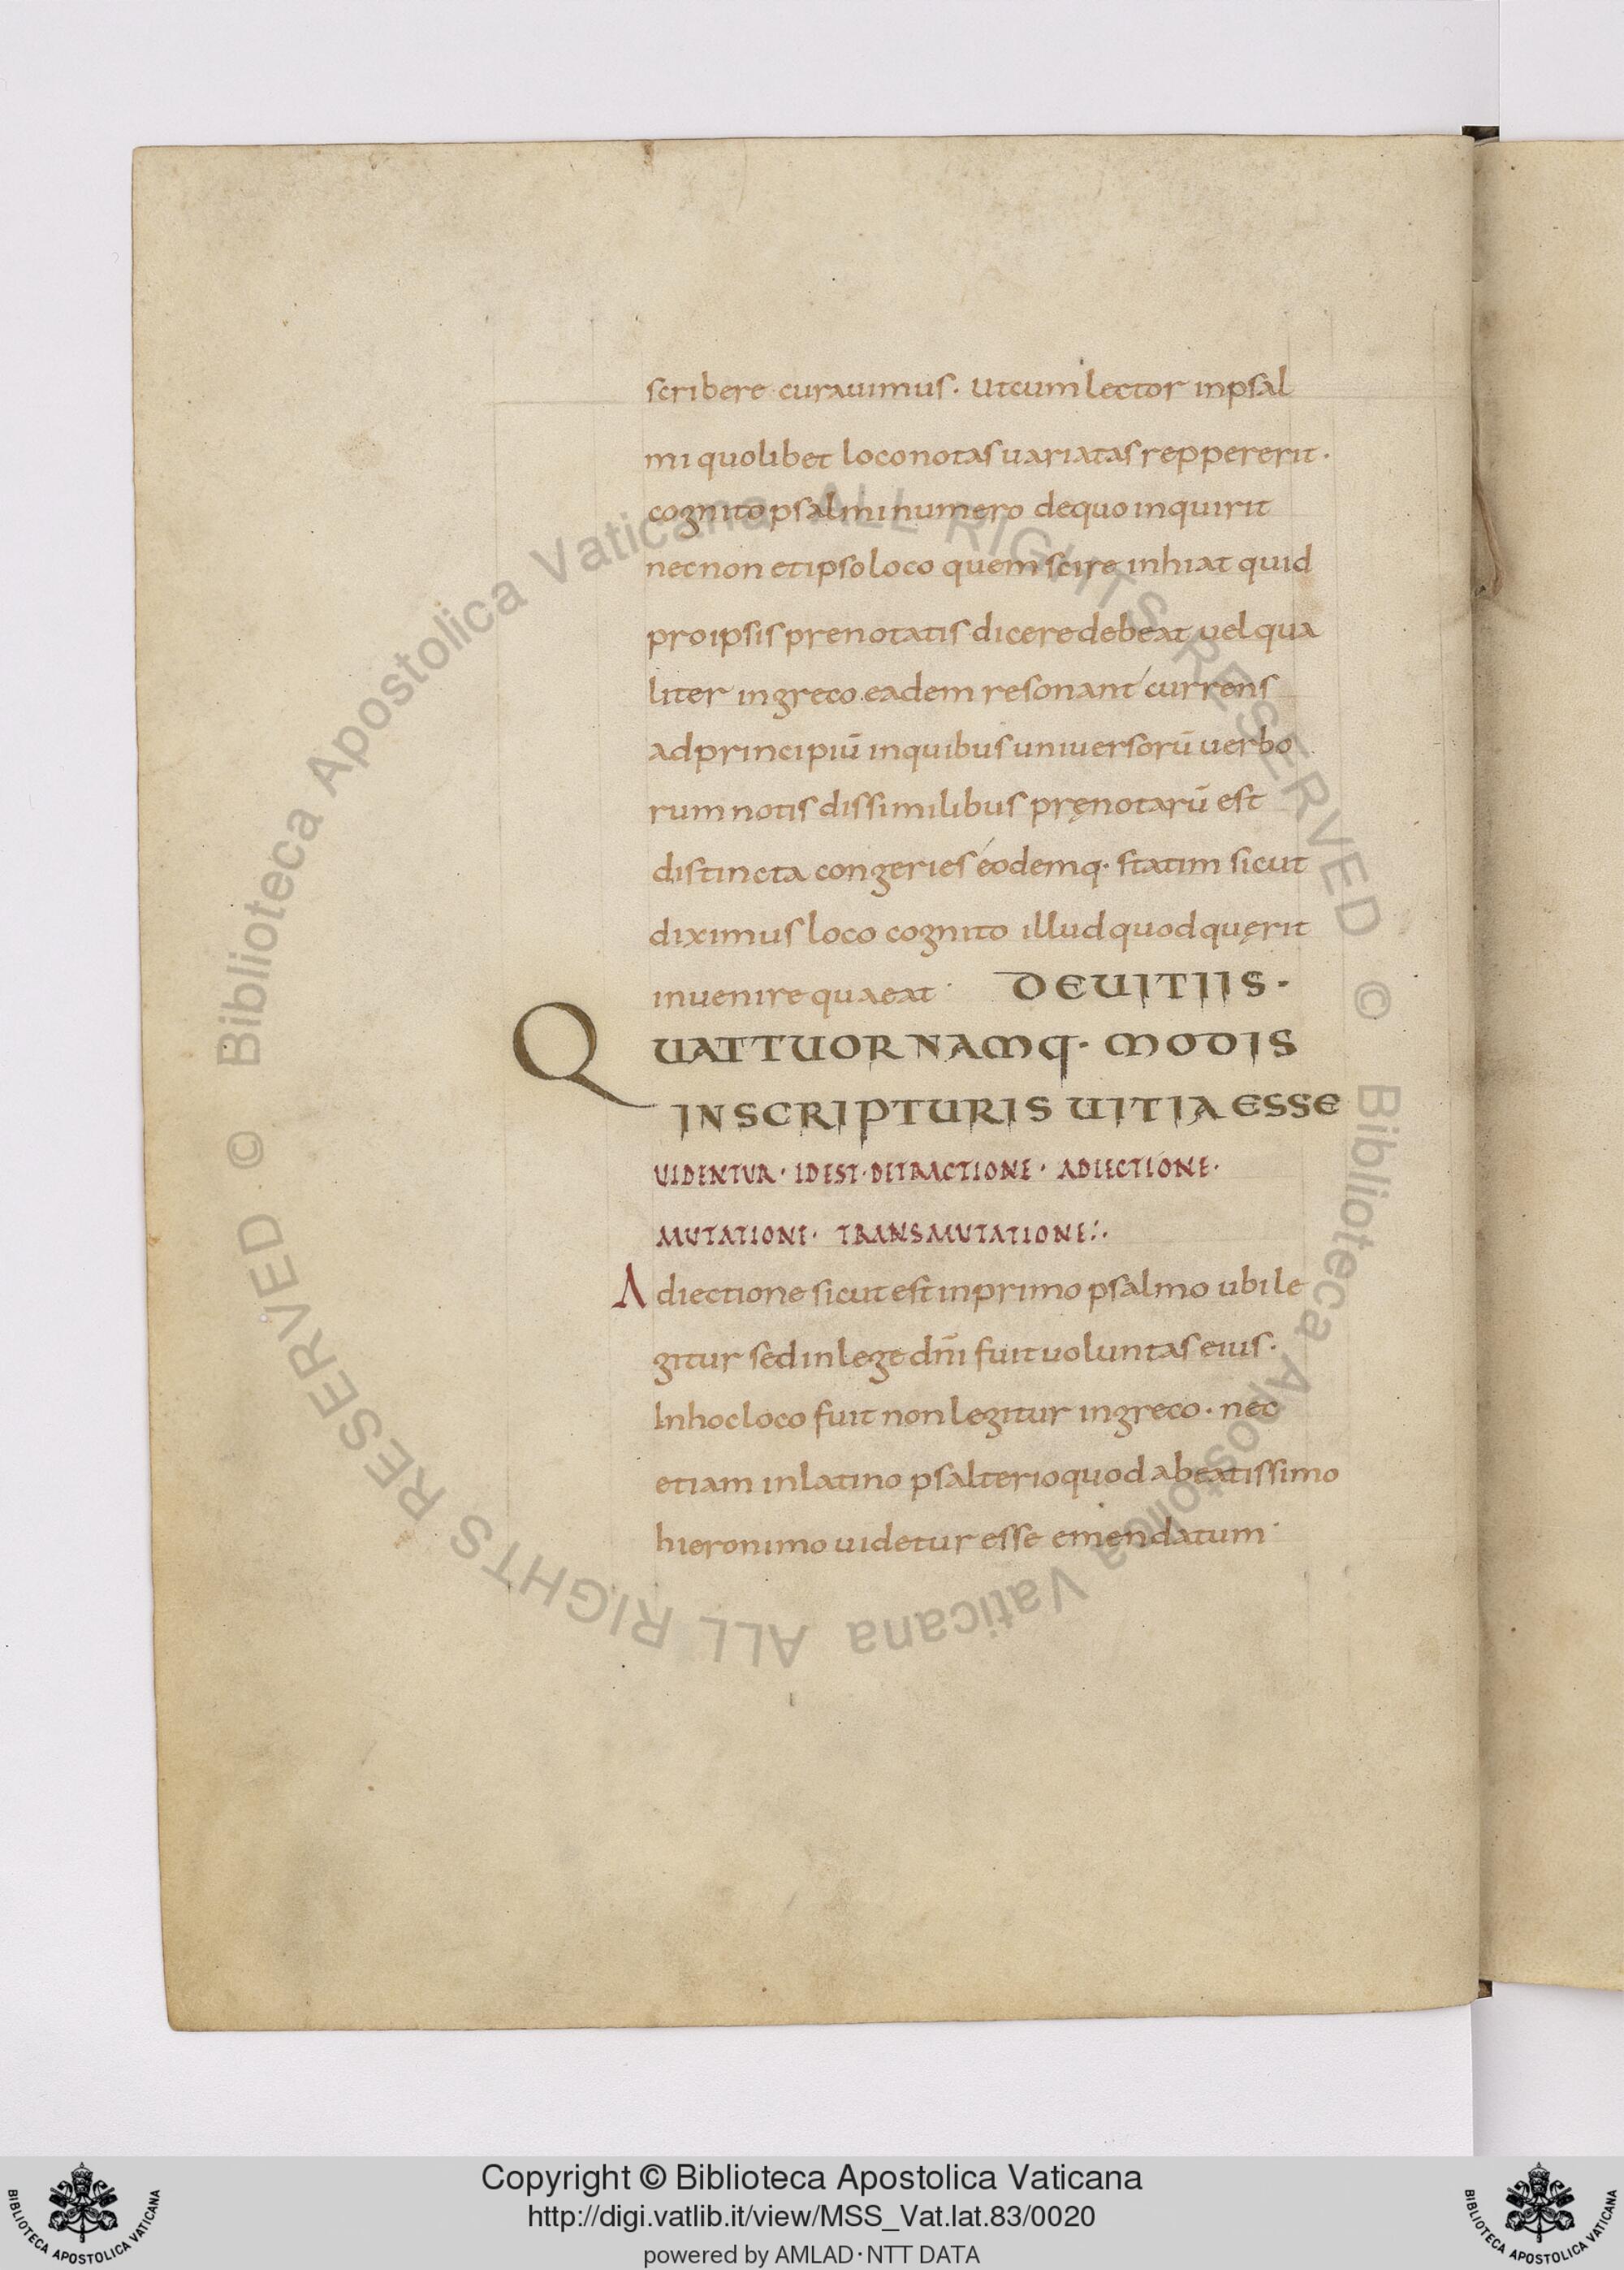 scribere curauimus. Utcum lector inpsal
mi quolibet loco notas uariatas reppererit.
cognito psalmi numero dequo inquirit
necnon etipso loco quem scire inhiat quid
proipsis prenotatis dicere debeat uel qua
liter ingreco eadem resonant currens
adprincipiū inquibus uniuersorū uerbo
rum notis dissimilibus pręnotarū est
distincta congeries éodemq· statim sicut
diximus loco cognito illud quod quęrit
inuenire quaeat· DEUITIIS·
QUATTUOR NAMQ· MODIS
INSCRIPTURIS UITIA ESSE
UIDENTUR· IDEST· DETRACTIONE· ADIECTIONE·
MUTATIONE· TRANSMUTATIONE:·
Adiectione sicut est inprimo psalmo ubi le
gitur sed inlege dn̄i fuit uoluntas eius·
Inhoc loco fuit non legitur ingreco· nec
etiam inlatino psalterio quod abeatissimo
hieronimo uidetur esse emendatum·
© Biblioteca Apostolica Vaticana ALL RIGHTS RESERVED
© Biblioteca Apostolica Vaticana ALL RIGHTS RESERVED
Copyright © Biblioteca Apostolica Vaticana
http://digi.vatlib.it/view/MSS_Vat.lat.83/0020
powered by AMLAD·NTT DATA
BIBLIOTECA APOSTOLICA VATICANA
BIBLIOTECA APOSTOLICA VATICANA